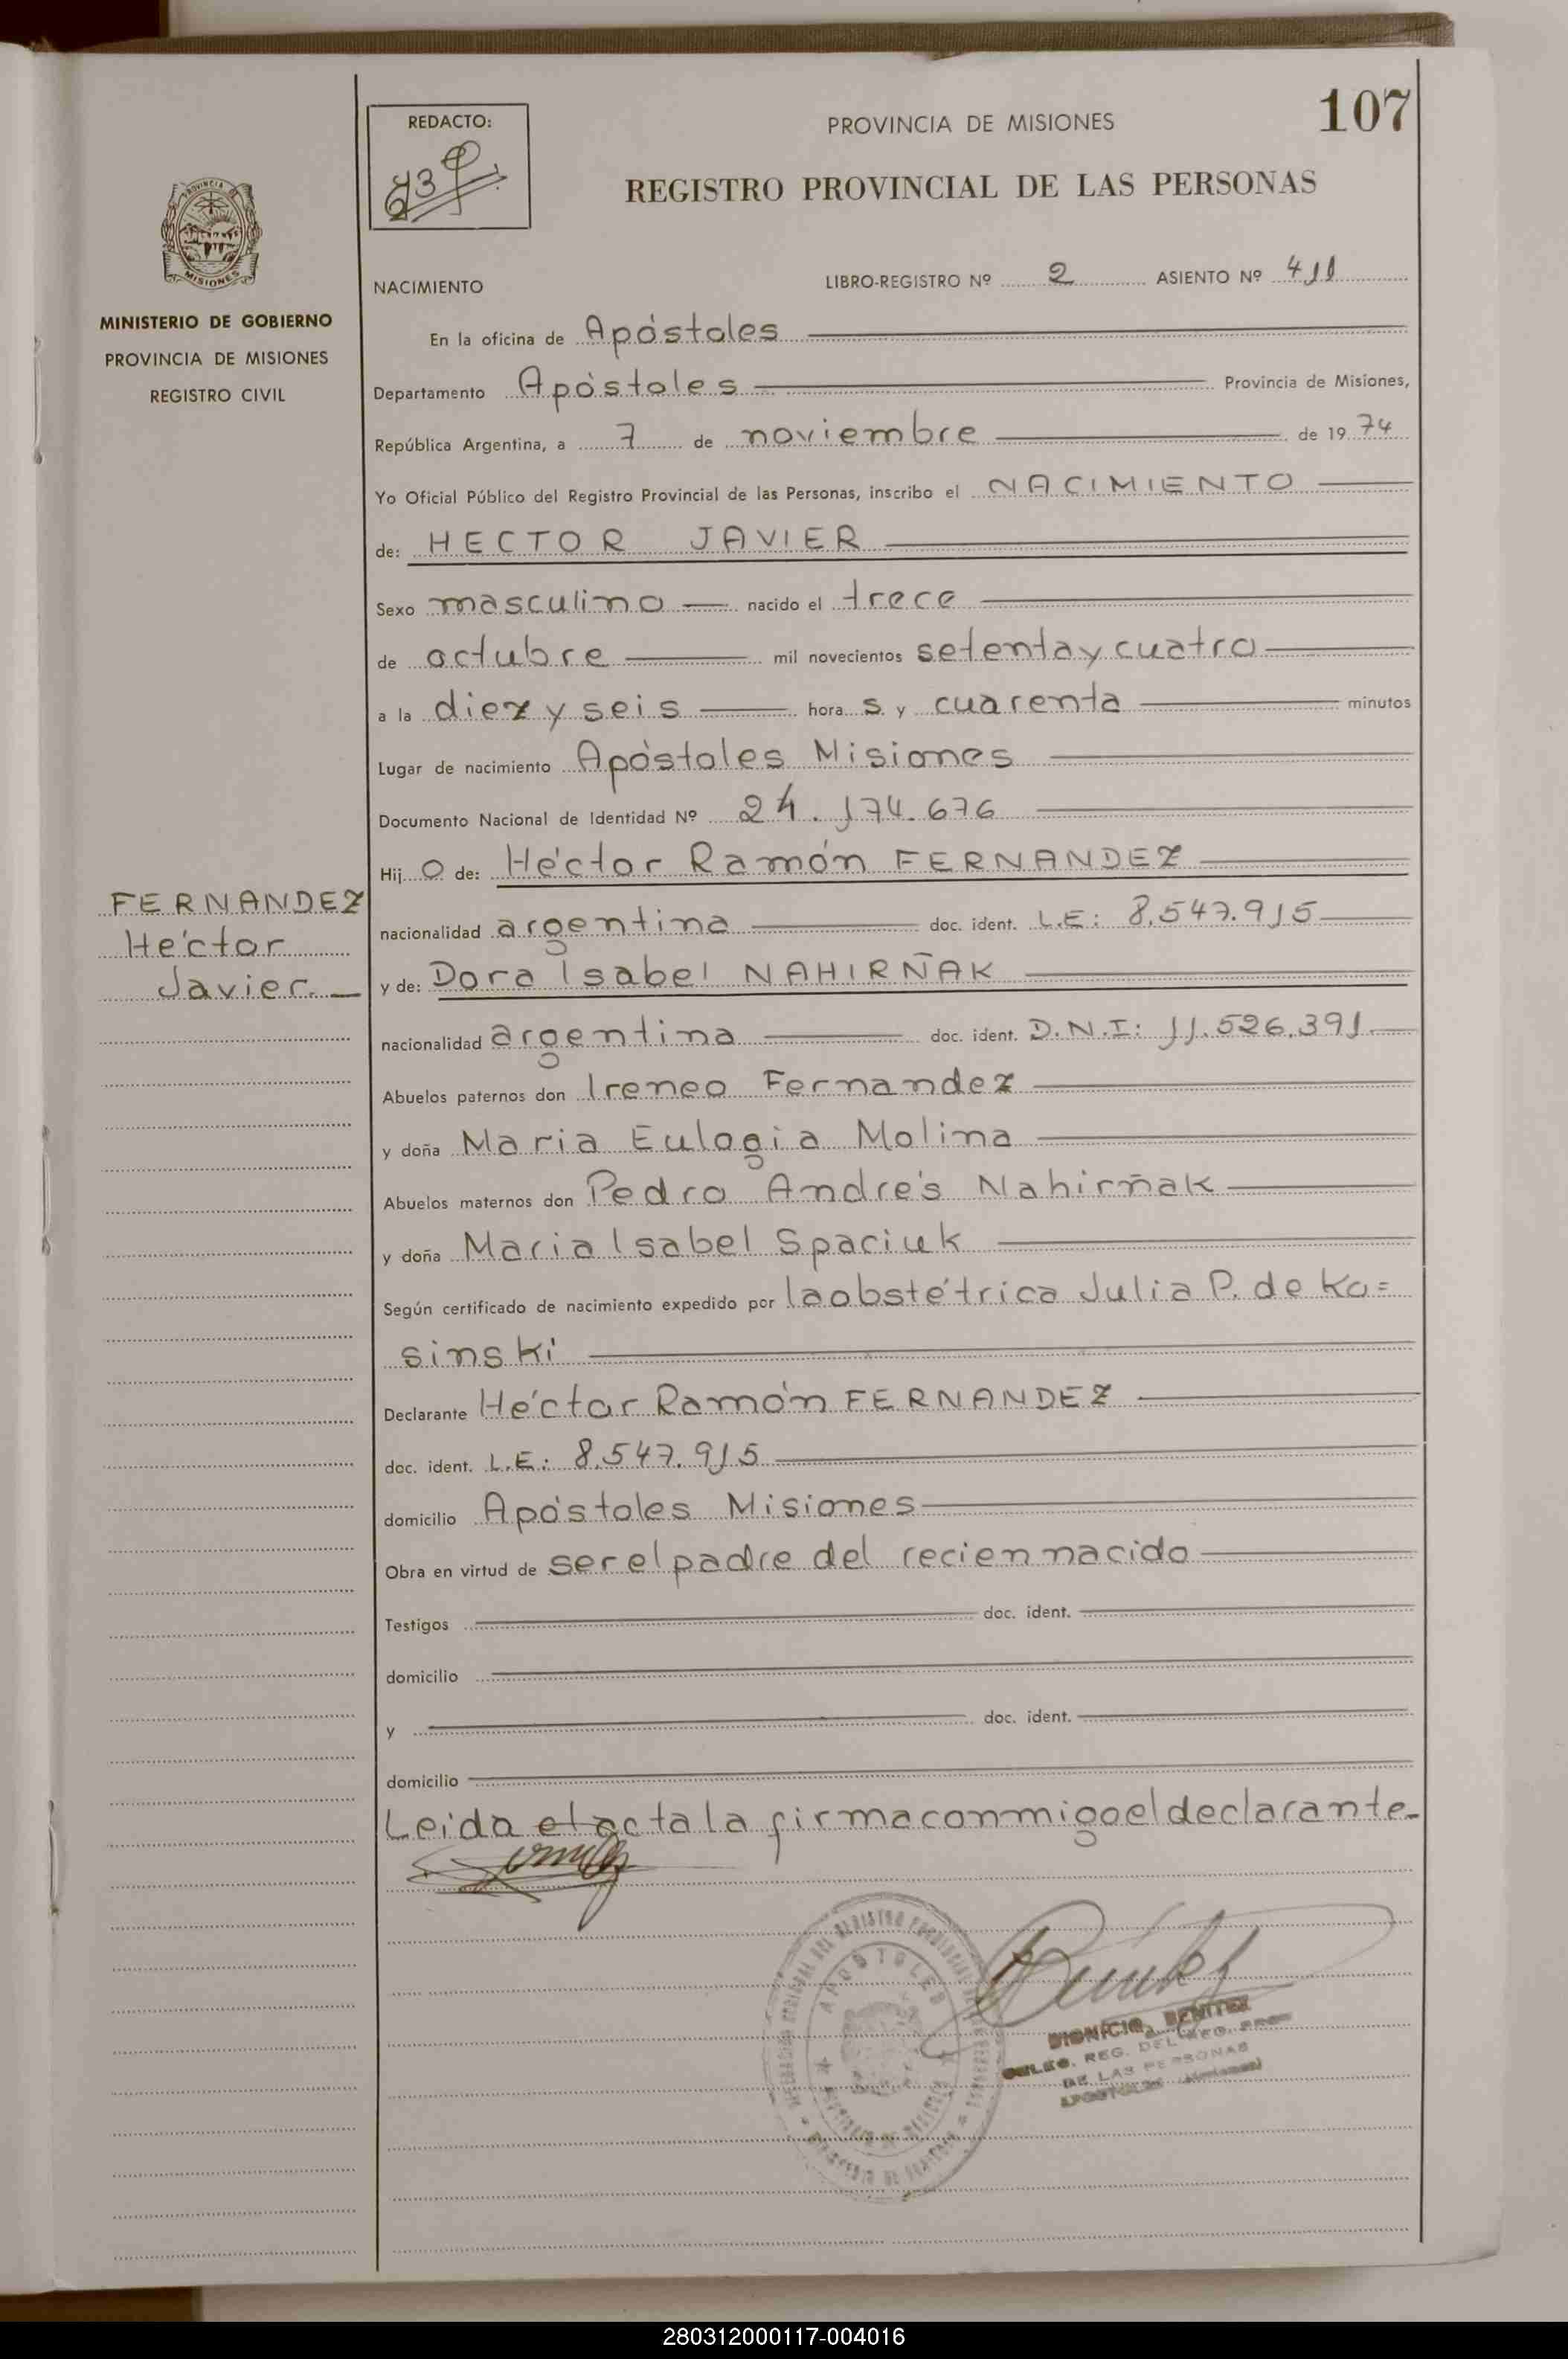 107
REDACTO:
PROVINCIA DE MISIONES
REGISTRO PROVINCIAL DE LAS PERSONAS
PROVINCIA DE
MISIONES
MINISTERIO DE GOBIERNO
PROVINCIA DE MISIONES
REGISTRO CIVIL
NACIMIENTO LIBRO-REGISTRO Nº 2 ASIENTO Nº 411
En la oficina de Apóstoles
Departamento Apóstoles Provincia de Misiones,
República Argentina, a 7 de noviembre de 1974
Yo Oficial Público del Registro Provincial de las Personas, inscribo el NACIMIENTO
de: HECTOR JAVIER
Sexo masculino nacido el trece
de octubre mil novecientos setenta y cuatro
a la diez y seis hora s y cuarenta minutos
Lugar de nacimiento Apóstoles Misiones
Documento Nacional de Identidad Nº 24.174.676
Hij o de: Héctor Ramón FERNANDEZ
nacionalidad argentina doc. ident. L.E: 8.547.915
y de: Dora Isabel NAHIRÑAK
nacionalidad argentina doc. ident. D.N.I: 11.526.391
Abuelos paternos don Ireneo Fernandez
y doña Maria Eulogia Molina
Abuelos maternos don Pedro Andrés Nahirñak
y doña Maria Isabel Spaciuk
Según certificado de nacimiento expedido por la obstétrica Julia P. de Ko=
sinski
Declarante Héctor Ramón FERNANDEZ
doc. ident. L.E: 8.547.915
domicilio Apóstoles Misiones
Obra en virtud de ser el padre del recien nacido
Testigos doc. ident.
domicilio
y doc. ident.
domicilio
Leida el acta la firma conmigo el declarante
FERNANDEZ
Héctor
Javier.
APOSTOLES
DIONICIO BENITEZ
REG. DEL REG. PROV
DE LAS PERSONAS
280312000117-004016